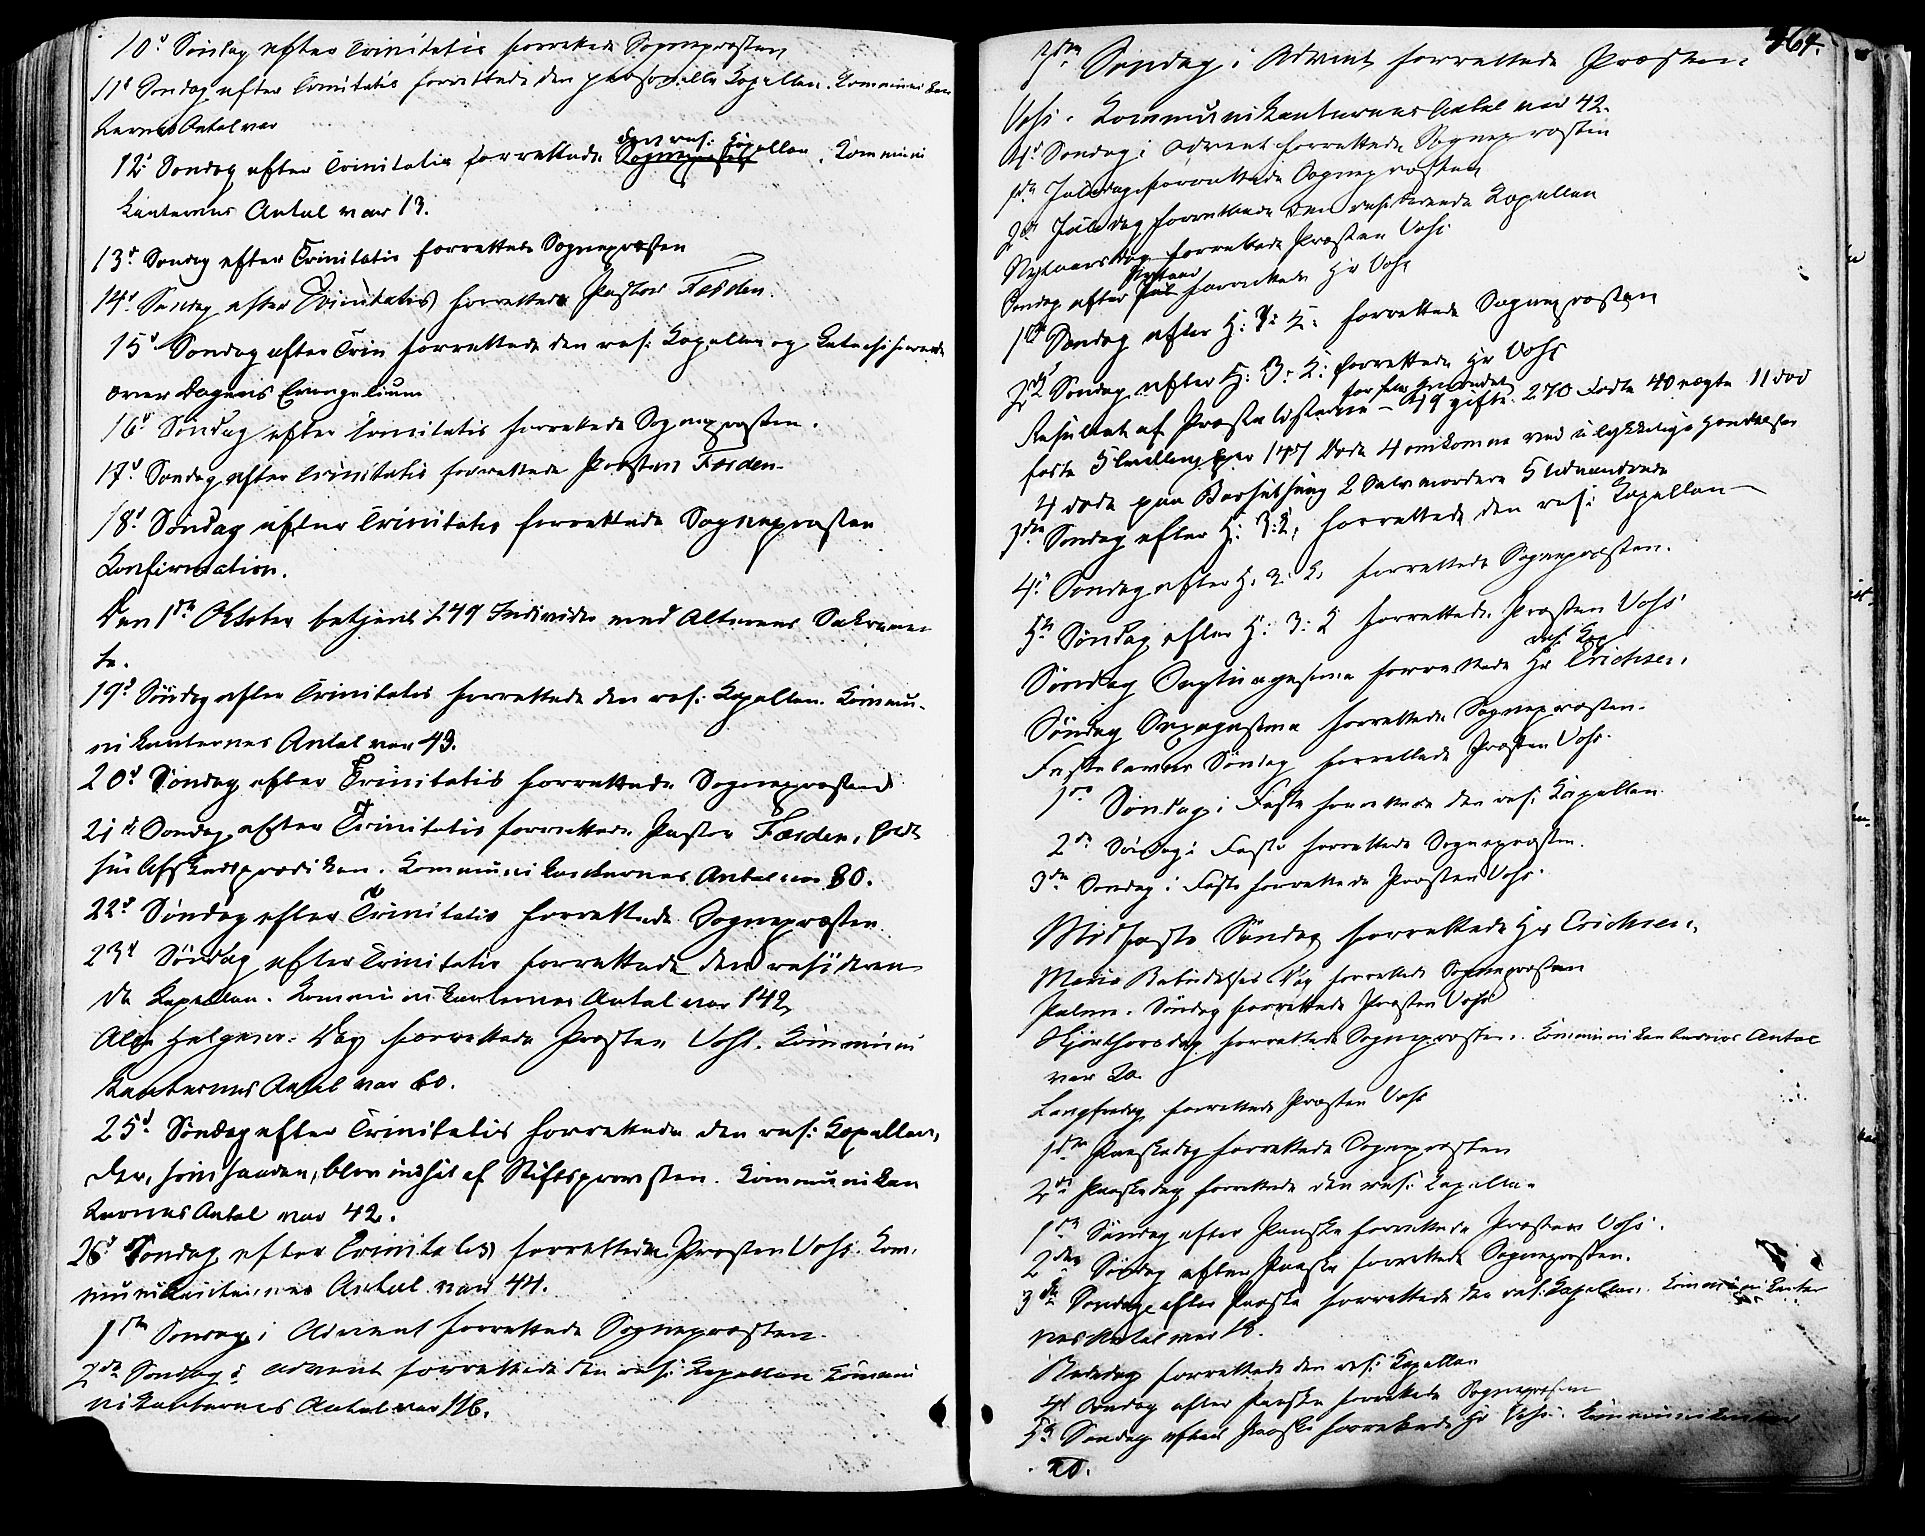 10d Søndag efter Trinitatis forrettede Sognepræsten
11t Søndag efter Trinitatis forrettede den personelle Kapellan. Kommunikan
ternes Antal var
den res: Kapellan
12t Søndag efter Trinitatis forrettede Sognepræsten. Kommuni
kanternes Antal var 13.
13d Søndag efter Trinitatis forrettede Sognepræsten
14d Søndag efter Trinitatis forrettede Pastor Færden.
15d Søndag efter Trin forrettede den res: Kapellan og Katechiserede
over Dagens Evangelium
16d Søndag efter Trinitatis forrettede Sognepræsten.
17d Søndag efter Trinitatis forrettede Præsten Færden.
18d Søndag efter Trinitatis forrettede Sognepræsten
Konfirmation.
Den 1ste Oktober betjent 249 Individer med Alterens Sakramen
te.
19d Søndag efter Trinitatis forrettede den res: Kapellan. Kommu-
nikanternes Antal var 43.
20d Søndag efter Trinitatis forrettede Sognepræsten
21d Søndag efter Trinitatis forrettede Pastor Færden, holdt
sin Afskedsprædiken. Kommunikanternes Antal var 80.
22d Søndag efter Trinitatis forrettede Sognepræsten
23d Søndag efter Trinitatis forrettede den resideren
de Kapellan. Kommunikanternes Antal var 142
Alle Helgens-Dag forrettede Præsten Vohs. Kommuni
kanternes Antal var 60.
25d Søndag efter Trinitatis forrettede den res: Kapellan,
der, blev indsat af Stiftsprovsten. Kommunikan
ternes Antal var 42.
26d Søndag efter Trinitatis forrettede Præsten Vohs. Kom,
munikanternes Antal var 44.
1ste Søndag i Advent forrettede Sognepræsten.
2de Søndag i Advent forrettede den res: Kapellan Kommu
nikanternes Antal var 116.
464.
3die Søndag i Advent forrettede Præsten
Vohs. Kommunikanternes Antal var 42.
4d Søndag i Advent forrettede Sognepræsten
1ste Juledag forrettede Sognepræsten
2d Juledag forrettede den residerende Kapellan
Nytaarsdag forrettede Præsten Vohs
Nytaar
Søndag efter Jul forrettede Hr Vohs
1ste Søndag efter H: 3: K: forrettede Sognepræsten
2d Søndag efter H: 3: K: forrettede Hr Vohs
Resultat af Præstelisterne - 49 gifte. 270 Fødte 40 uægte 11 død
fødte 5 Tvillingpar 147 Døde 4 omkomne ved ulykkelige Hændelser
4 døde paa Barselseng 2 Selvmordere 5
3die Søndag efter H: 3: K, forrettede den res: Kapellan
4d Søndag efter H. 3: K. forrettede Sognepræsten.
5te Søndag efter H: 3: K forrettede Præsten Vohs
res: Kap
Søndag Septuagesima forrettede Hr Erichsen.
Søndag Sexagesima forrettede Sognepræsten.
Fastelavns Søndag forrettede Præsten Vohs.
1ste Søndag i Faste forrettede den res: Kapellan
2de Søndag i Faste forrettede Sognepræsten.
3die Søndag i Faste forrettede Præsten Vohs.
Midfaste Søndag forrettede Hr Erichsen.
Maria Bebudelses Dag forrettede Sognepræsten
Palme-Søndag forrettede Præsten Vohs
Skjærthorsdag forrettede Sognepræsten. Kommunikanternes Antal
var 20.
Langfredag forrettede Præsten Vohs
1ste Paaskedag forrettede Sognepræsten
2d Paaskedag forrettede den res: Kapellan
1ste Søndag efter Paaske forrettede Præsten Vohs.
2den Søndag efter Paaske forrettede Sognepræsten.
3die Søndag efter Paaske forrettede den res: Kapellan. Kommunikanter
nes Antal var 18.
Bededag forrettede den res: Kapellan
4d Søndag efter Paaske forrettede Sognepræsten
5te Søndag efter Paaske forrettede Hr Vohs. Kommunikanter
20.